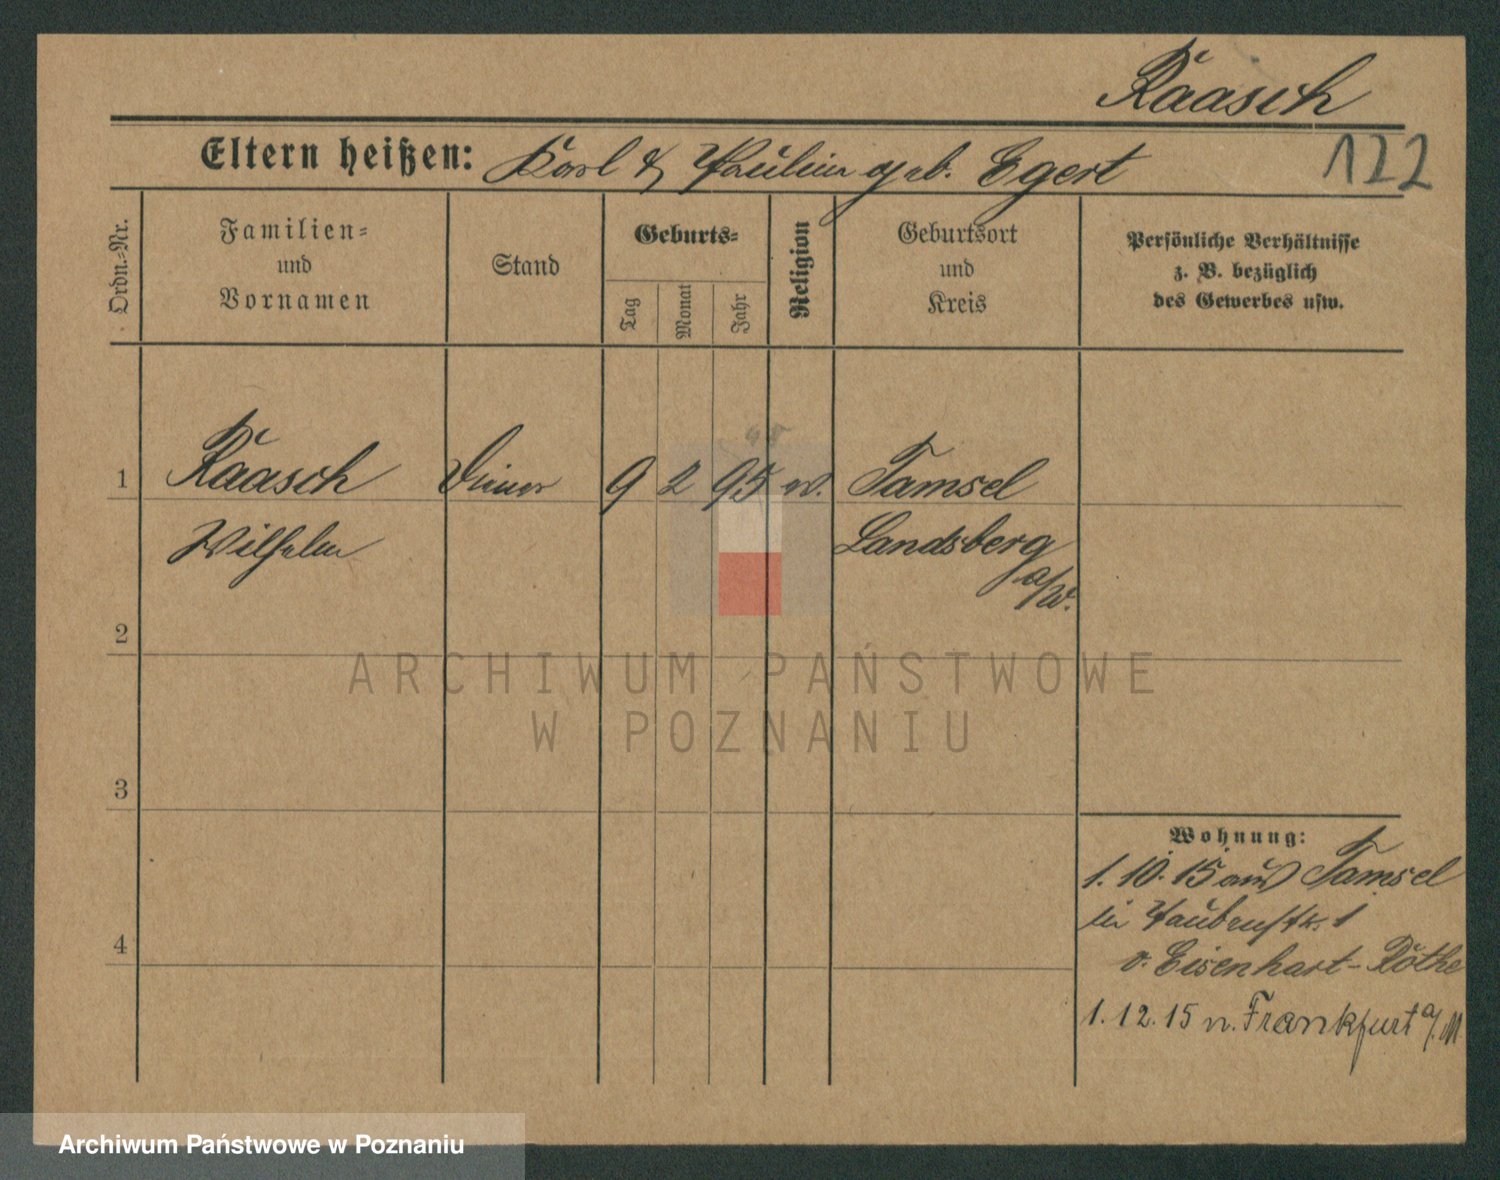 Raasch
122
Eltern heißen: Karl & Paulin geb. Egert
Ordn.=Nr.
Familien=
und
Vornamen
Stand
Geburts=
Tag
Monat
Jahr
Religion
Geburtsort
und
Kreis
Persönliche Verhältnisse
z. B. bezüglich
des Gewerbes usw.
1 Raasch Diener 9 2 95 ev. Tamsel
Wilhelm Landsberg
a/W.
2
3
4
Wohnung:
1.10.15 aus Tamsel
in 1
v. Eisenhart-Rothe
1.12.15 n. Frankfurt a/M
ARCHIWUM PAŃSTWOWE
W POZNANIU
Archiwum Państwowe w Poznaniu